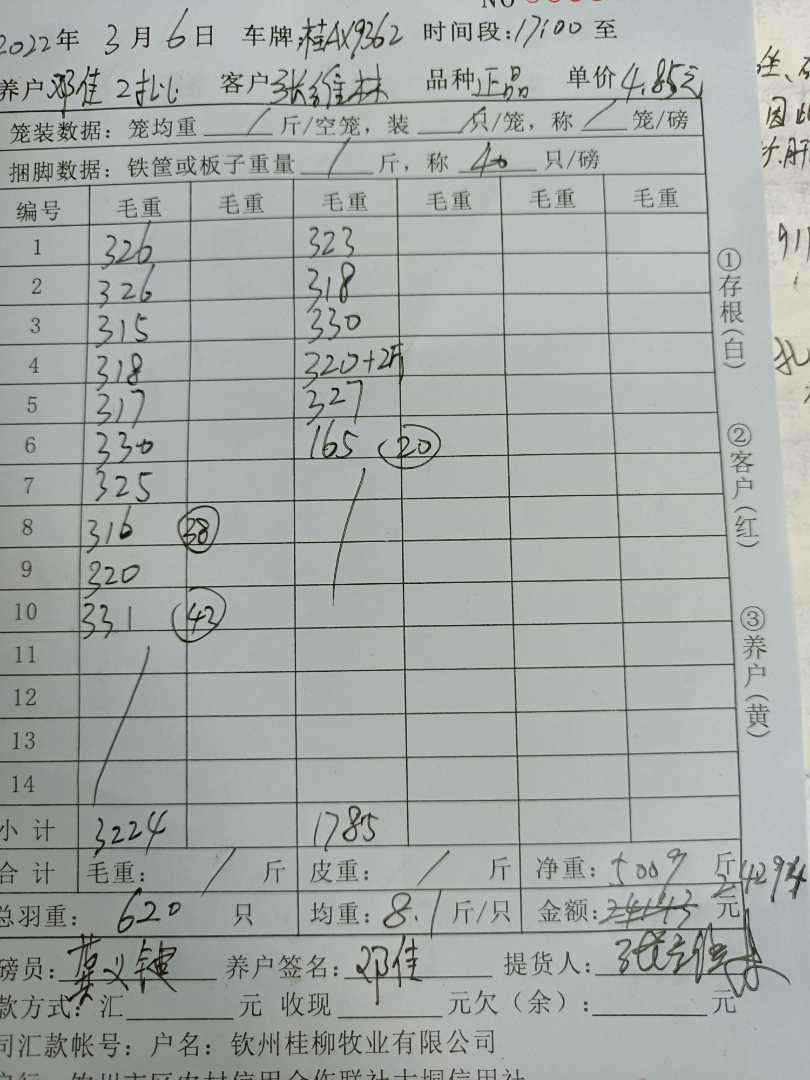 2022年 3月6日 车牌:桂AX9362 时间段:17:00 至
养户:邓佳 2批 客户:张维林 品种:正品 单价4.85元
笼装数据: 笼均重 / 斤/空笼, 装 / 只/笼, 称 / 笼/磅
捆脚数据: 铁筐或板子重量 / 斤, 称 40 只/磅
编号 毛重 毛重 毛重 毛重 毛重 毛重
1 326 323
2 326 318
3 315 330
4 318 320+2斤
5 317 327
6 330 165 20
7 325
8 316 38
9 320
10 331 42
11
12
13
14
小计 3224 1785
合计 毛重: / 斤 皮重: / 斤 净重: 5009 斤
总羽重: 620 只 均重: 8.1 斤/只 金额: 24143 元 24294
磅员: 养户签名: 邓佳 提货人: 张维林
款方式: 汇 元 收现 元欠(余): 元
司汇款帐号: 户名: 钦州桂柳牧业有限公司
①存根(白)
②客户(红)
③养户(黄)